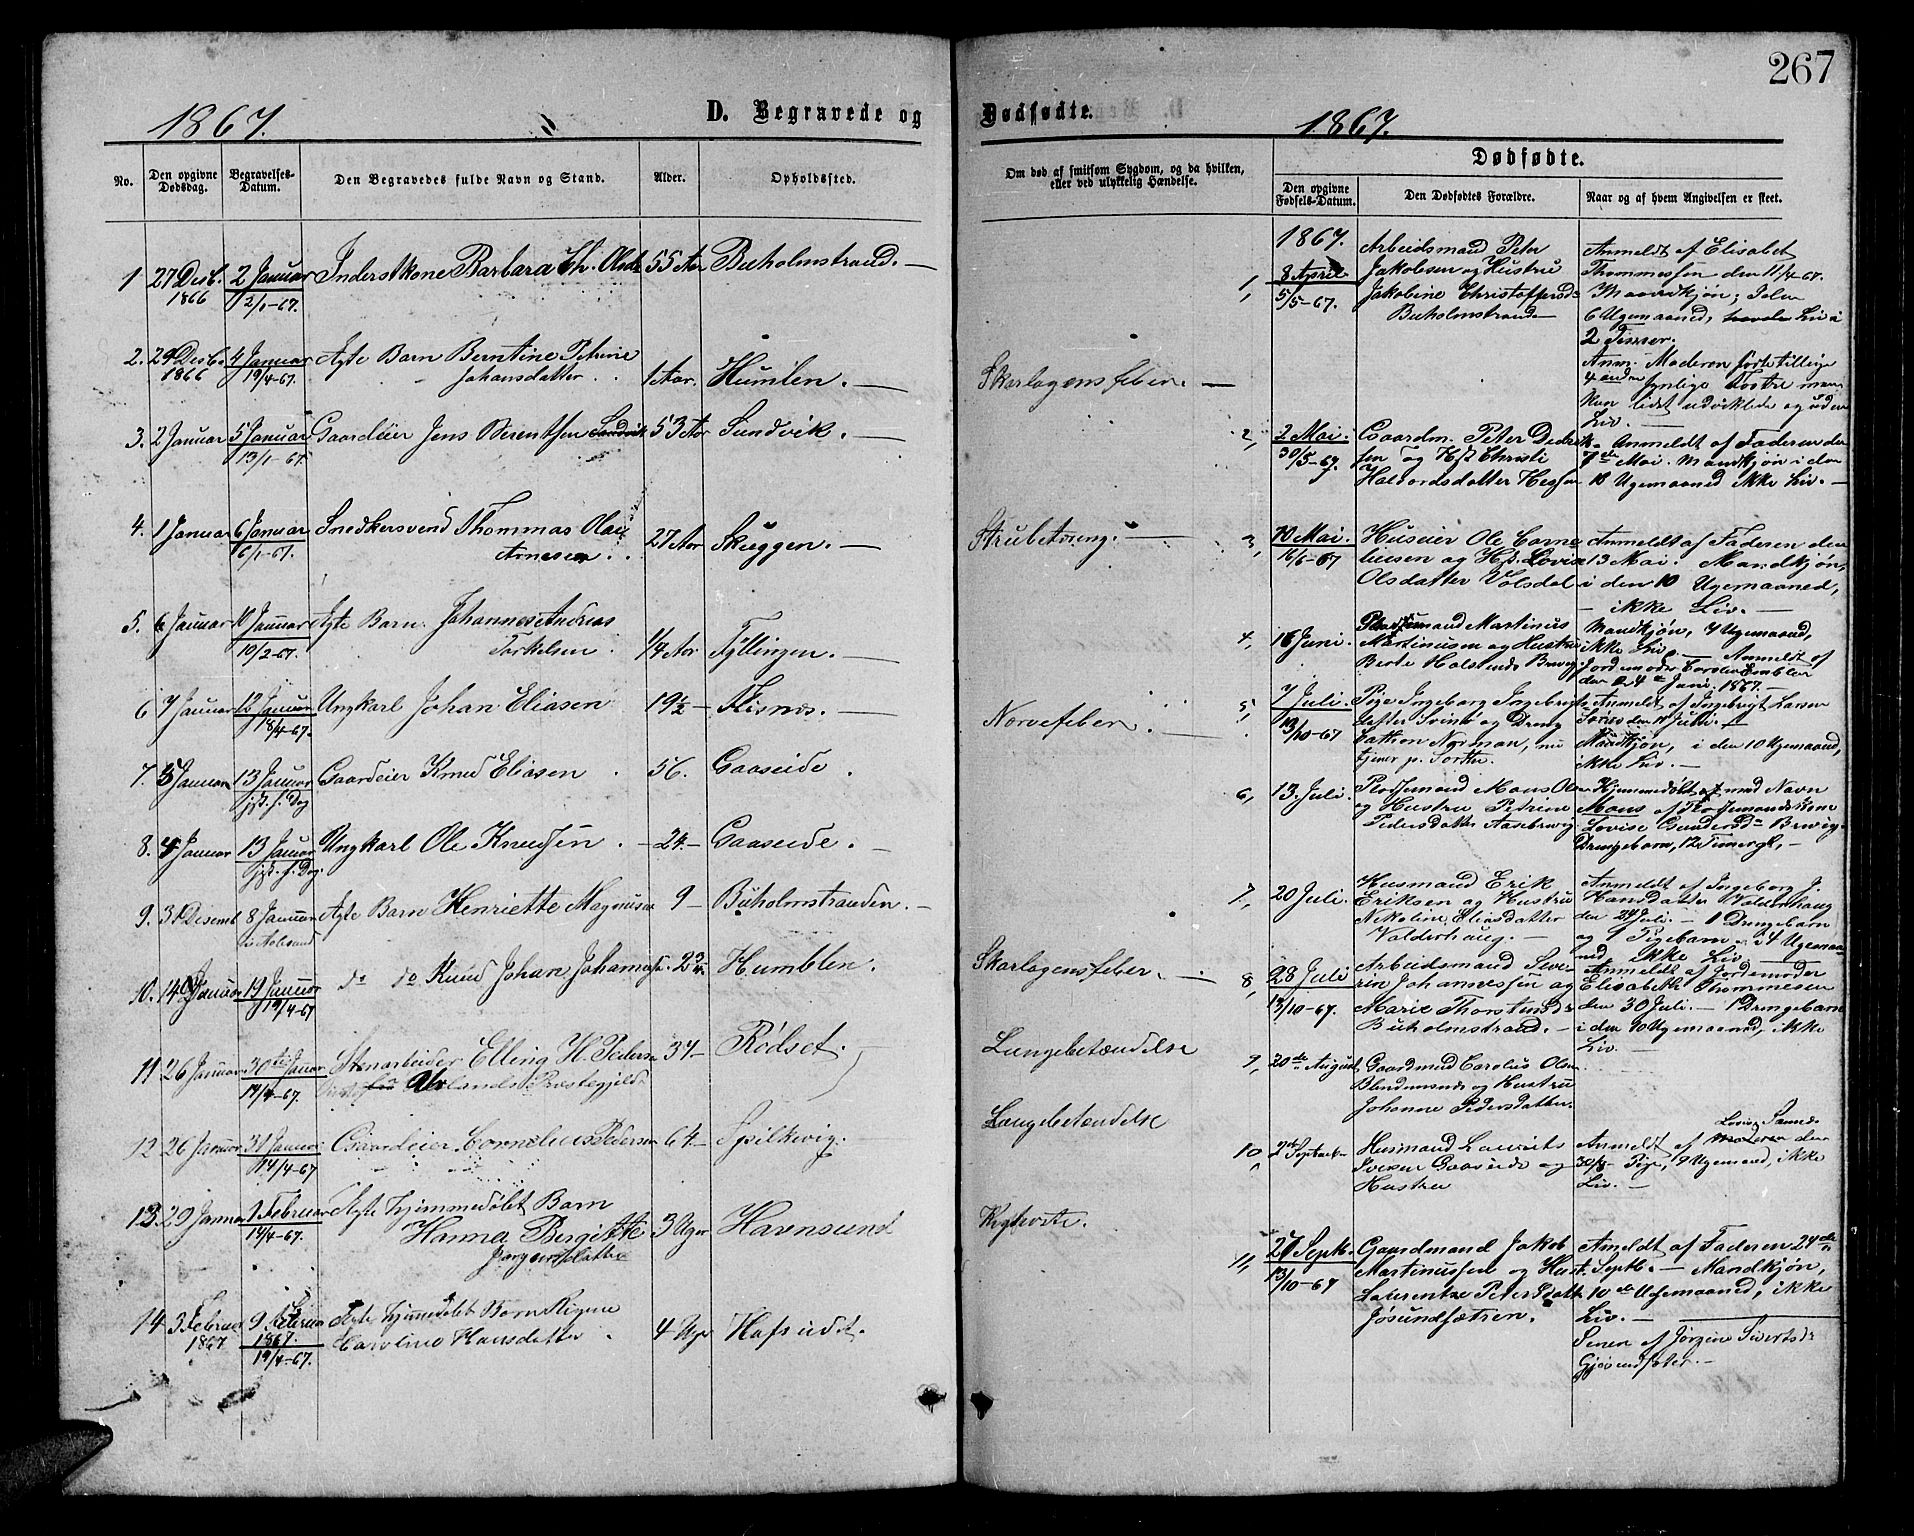 267
1867.
D. Begravede og
Dødfødte.
1867.
No.
Den opgivne Dødsdag.
Begravelses-Datum.
Den Begravedes fulde Navn og Stand.
Alder.
Opholdssted.
Om død af smitsom Sygdom, og da hvilken,
eller ved ulykkelig Hændelse.
Dødfødte.
Den opgivne Fødsels-Datum.
Den Dødfødtes Forældre.
Naar og af hvem Angivelsen er skeet.
1 27 Desb. 1866 2 Januar 2/1-67. Inderstkone Barbara Th. Olsdr 55 Aar Buholmstrand. —
2. 29 Desb. 1866 4 Januar 19/4-67. Ægte Barn Berntine Petrine
Johansdatter . 1 Aar. Humlen. — Skarlagensfeber. —
3. 2 Januar 5 Januar 13/1-67. Gaardeier Jens Berentsen Sandvik 53 Aar Sundvik. —
4. 1 Januar 6 Januar 6/1-67. Snedkersvend Thommas Olai
Arnesen . 27 Aar Skuggen. — Strubetøring. —
5. 6 Januar 10 Januar 10/2-67. Ægte Barn Johannes Andreas
Torkelsen . 1/4 Aar Fyllingen. —
6 7 Januar 12 Januar 18/4-67. Ungkarl Johan Eliasen 19 1/2 — Flisnes. — Nervefeber. —
7. 5 Januar 13 Januar jfst. s. Dag Gaardeier Knud Eliasen . 56. Gaaseide .
8. 4 Januar 13 Januar jfst. s. Dag. Ungkarl Ole Knudsen . — 24 — Gaaseide. —
9. 31 Desemb 8 Januar i Aalesund Ægte Barn Henriette Magnusen 9 — Buholmstranden. —
10. 14 Januar 19 Januar 19/4-67 do do Knud Johan Johannesen 2 3/4 — Humblen. Skarlagensfeber. —
11 26 Januar 30te Januar 19/4-67. Stenarbeider Elling H. Pedersen 34 — Rødset. Lungebetændelse
Præstegjeld
12 26 Januar 31 Januar 14/4-67 Gaardeier Cornelius Pedersen 64 — Spilkevig. — Lungebetændelse
13 29 Januar 1 Februar 14/4-67. Ægte hjemmedøbt Barn
Hanna Birgitte 3 Uger Havnsund Kighoste.
Jørgensdatter
14 3 Februar 1867 9 Februar 1867. 19/4-67. Ægte hjemmedøbt Barn Regine
Caroline Hansdatter . 4 Uger Hafsudt.
1867.
1, 8 April 5/5-67. Arbeidsmand Peter
Jakobsen og Hustru
Jakobine Christoffersd.
Buholmstrand —
Anmeldt af Elisabet
Thommessen den 11/4-67.
Mandkjøn;
6 Ugemaaned, havde Liv i
2 Timer.
Anm. Moderen
Liv. —
2, 2 Mai. 30/5-67. Gaardm. Peter Didrik
sen og Hst Christi
Halvordsdatter Hessen
Anmeldt af Faderen den
7de Mai. Mandkjøn i den
18 Ugemaaned ikke Liv. —
3, 10 Mai. 16/6-67 Huseier Ole Corne
liusen og Hst. Lovise
Olsdatter Volsdal
Anmeldt af Faderen den
13 Mai. Mandkjøn,
i den 10 Ugemaaned,
— ikke Liv. —
4, 16 Juni. Pladsmand Martinus
Martinusen og Hustru
Berte Brevig.
Mandkjøn, 7 Ugemaaned,
ikke Liv. — Anmeldt af
Jordemoder Emblem
den 24de Juni 1867. —
5, 7 Juli. 13/10-67 Pige Ingeborg Ingebrigts
datter og Dreng
Norman, nu
tjener p. Sortta.
Anmeldt af Ingebrigt Larsen
den 11 Juli. —
Mandkjøn, i den 10 Ugemaaned,
ikke Liv. —
6, 13. Juli. Pladsmand Mons Olsen
og Hustru Petrine
Pedersdatter Aasebrevig
Hjemmedøbt med Navn
Mons af Pladsmandskone
Lovise Gundersd. Brevig.
Drengebarn, 12 Timer gl. —
7, 20 Juli. Husmand Erik
Eriksen og Hustru
Nikoline Eliasdatter
Valderhaug. —
Anmeldt af Ingeborg J.
Hansdatter Valderhaug
den 24 Juli. — 1 Drengebarn
og 1 Pigebarn i 4 Ugemaa-
ned ikke Liv. —
8, 28 Juli 13/10-67. Arbeidsmand Seve-
rin Johannessen og
Marie Thorstensdr
Buholmstrand. —
Anmeldt af Jordemoder
Elisabeth Thommesen
den 30 Juli. — 1 Drengebarn
i den 10 Ugemaaned, ikke
Liv. —
9, 20de August, Gaardmd Carolus Olsen
Blindemsnes og Hustru
Johanne Pedersdatter.
10, 2de Septbr. Husmand Laurits
Iversen Gaaseide og
Hustru
Anmeldt af Moderen den
30/9 — Pige, 9 Ugemaaned, ikke
Liv. —
11, 21 Septb. 13/10-67 Gaardmand Jakob
Martinussen og Hust.
Laurentze Petersdatt
Jøsundsætren.
Anmeldt af Faderen 24de
Septb. — Mandkjøn,
10de Ugemaaned, ikke
Liv. —
Senere af Jørgine Sivertsdr
Gjøsundsæter. —